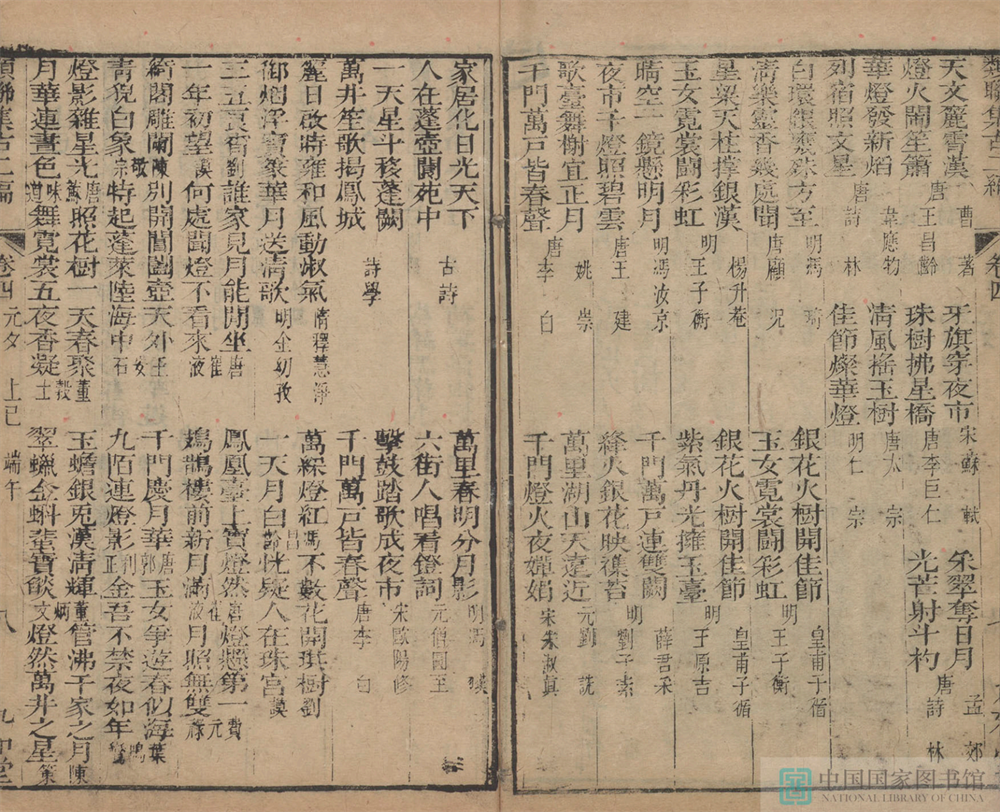 類聯集古二編
卷四
天文麗霄漢 曹著 牙旗穿夜市 宋蘇軾 朵翠奪日月 孟郊
燈火鬧笙簫 唐王昌齡 珠樹拂星橋 唐李巨仁 光芒射斗杓 唐詩林
華燈發新焰 韋應物 清風搖玉樹 唐太宗
列宿照文星 唐詩林 佳節燦華燈 明仁宗
白環銀甕殊方至 明馮琦 銀花火樹開佳節 皇甫子循
清樂靈香幾處聞 唐顧況 玉女霓裳鬭彩虹 明王子衡
星梁天柱撐銀漢 楊升菴 銀花火樹開佳節 皇甫子循
玉女霓裳鬭彩虹 明王子衡 紫氣丹光擁玉臺 明王原吉
晴空一鏡懸明月 明馮汝京 千門萬戶連雙闕 薛君采
夜市千燈照碧雲 唐王建 絳火銀花映葆苔 明劉子素
歌臺舞榭宜正月 姚崇 萬里湖山天遠近 元劉詵
千門萬戶皆春聲 唐李白 千門燈火夜嬋娟 宋朱淑真
家居化日光天下 萬里春明分月影 明馮瑛
人在蓬壺閬苑中 古詩 六街人唱看燈詞 元僧圓至
一天星斗移蓬闕 擊鼓踏歌成夜市 宋歐陽修
萬井笙歌揭鳳城 詩學 千門萬戶皆春聲 唐李白
麗日啟時雍和風動淑氣 隋釋慧淨 萬綵燈紅 馮 不數花開琪樹 劉
御烟浮寶篆華月送清歌 明金幼孜 一天月白 昌齡 恍疑人在珠宮 讓
三五良宵 劉 誰家見月能閒坐 鳳凰臺上寶燈然 唐 燈懸第一 費元
一年初望 讓 何處聞燈不看來 唐崔液 鳷鵲樓前新月滿 崔液 月照無雙 祿
綺閣雕闌 陳敬宗 別開閬圃壺天外 王 千門慶月華 唐郭 玉女爭遊春似海 葉
青猊白象 特起蓬萊陸海中 安石 九陌連燈影 利正 金吾不禁夜如年 鳴鸞
燈影雜星光 唐蘇 照花樹一天春聚 董 玉蟾銀兎漢清輝 董 管沸千家之月 陳
月華連晝色 味道 舞霓裳五夜香凝 穀士 翠蠟金蚪輩寶燄 文炳 燈然萬井之星 策
類聯集古二編
卷四 元夕 上巳 端午
八
中国国家图书馆
NATIONAL LIBRARY OF CHINA